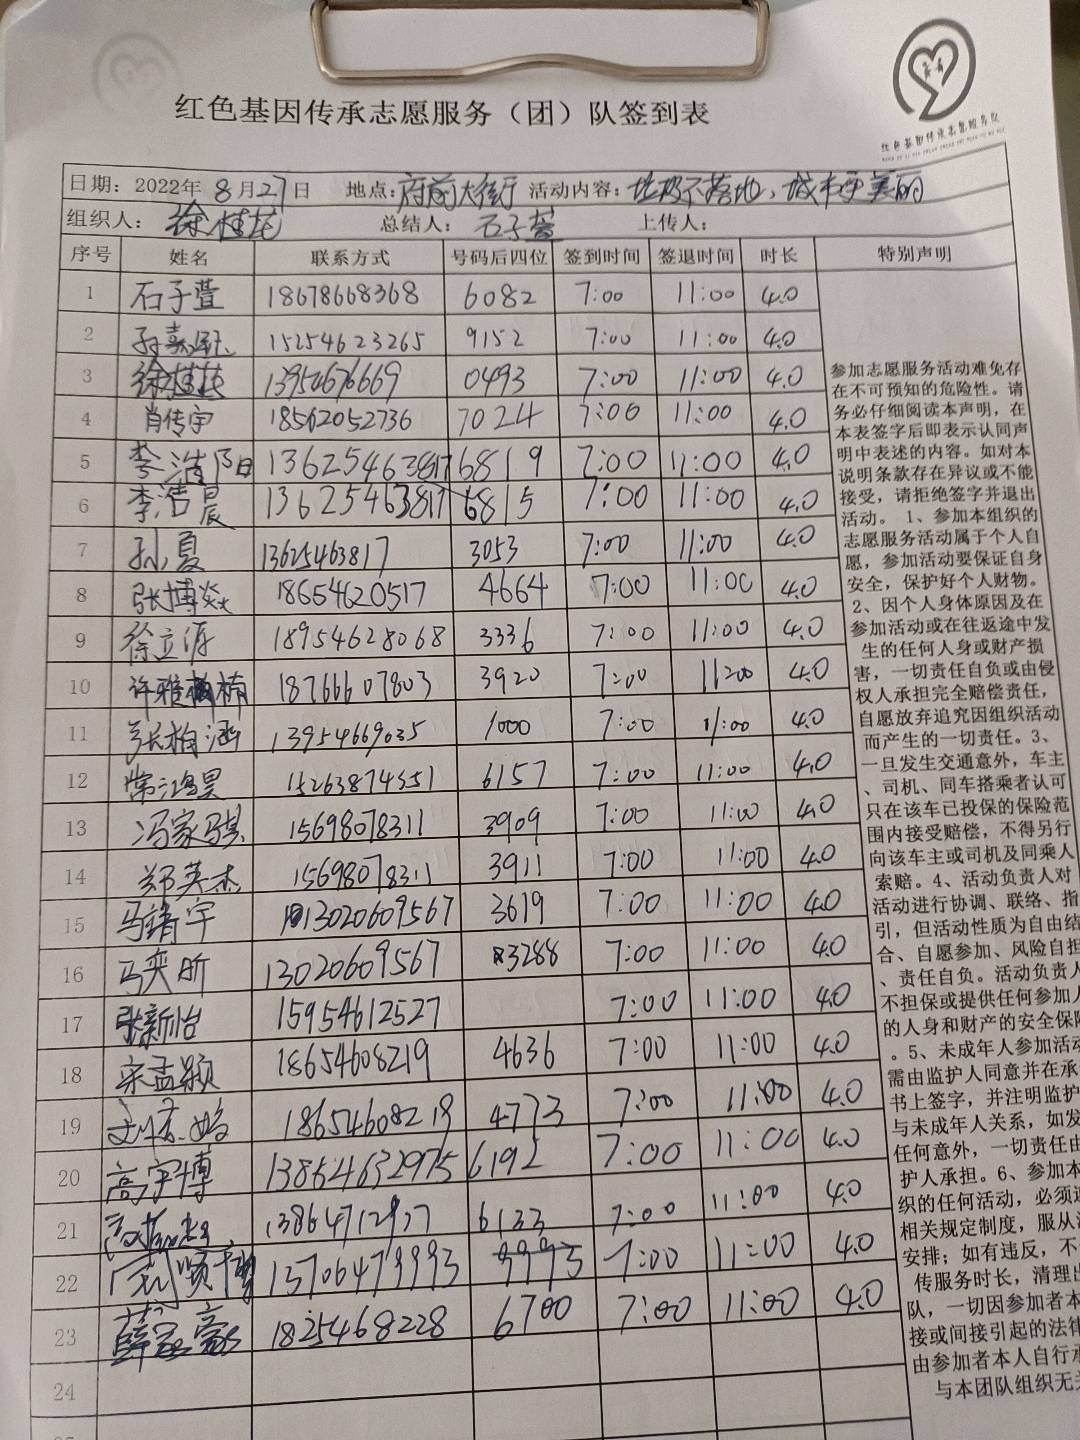 红色基因传承志愿服务（团）队签到表
红色基因传承志愿服务队
日期：2022年 8月27日 地点：府前大街厅 活动内容：垃圾不落地，城市更美丽
组织人：徐桂花 总结人：石子萱 上传人：
序号 姓名 联系方式 号码后四位 签到时间 签退时间 时长 特别声明
1 石子萱 18678668368 6082 7:00 11:00 4.0
2 15254623265 9152 7:00 11:00 4.0
3 徐桂花 13954676669 0493 7:00 11:00 4.0
4 肖传宇 18562052736 7024 7:00 11:00 4.0
5 李浩阳 13625463817 6819 7:00 11:00 4.0
6 李浩晨 13625463817 6815 7:00 11:00 4.0
7 孙夏 13625463817 3053 7:00 11:00 4.0
8 张博焱 18654620517 4664 7:00 11:00 4.0
9 徐立源 18954628068 3336 7:00 11:00 4.0
10 许雅楠 18766607803 3920 7:00 11:00 4.0
11 张柏涵 13954669035 1000 7:00 11:00 4.0
12 常鸿昊 15263874551 6157 7:00 11:00 4.0
13 冯家骐 15698078311 3909 7:00 11:00 4.0
14 郑英杰 15698078311 3911 7:00 11:00 4.0
15 马靖宇 13020609567 3619 7:00 11:00 4.0
16 马奕昕 13020609567 3288 7:00 11:00 4.0
17 张新怡 15954612527 7:00 11:00 4.0
18 宋孟颖 18654608219 4636 7:00 11:00 4.0
19 18654608219 4773 7:00 11:00 4.0
20 高宇博 13864632975 6192 7:00 11:00 4.0
21 13864712937 6133 7:00 11:00 4.0
22 13706479993 9993 7:00 11:00 4.0
23 薛 1825468228 6700 7:00 11:00 4.0
24
参加志愿服务活动难免存
在不可预知的危险性。请
务必仔细阅读本声明，在
本表签字后即表示认同声
明中表述的内容。如对本
说明条款存在异议或不能
接受，请拒绝签字并退出
活动。 1、参加本组织的
志愿服务活动属于个人自
愿，参加活动要保证自身
安全，保护好个人财物。
2、因个人身体原因及在
参加活动或在往返途中发
生的任何人身或财产损
害，一切责任自负或由侵
权人承担完全赔偿责任，
自愿放弃追究因组织活动
而产生的一切责任。3、
一旦发生交通意外，车主
、司机、同车搭乘者认可
只在该车已投保的保险范
围内接受赔偿，不得另行
向该车主或司机及同乘人
索赔。4、活动负责人对
活动进行协调、联络、指
引，但活动性质为自由结
合、自愿参加、风险自担
、责任自负。活动负责人
不担保或提供任何参加人
的人身和财产的安全保险
。5、未成年人参加活动
需由监护人同意并在承
书上签字，并注明监护
与未成年人关系，如发
任何意外，一切责任由
护人承担。6、参加本
织的任何活动，必须
相关规定制度，服从
安排；如有违反，不
传服务时长，清理出
队，一切因参加者本
接或间接引起的法律
由参加者本人自行承
与本团队组织无关